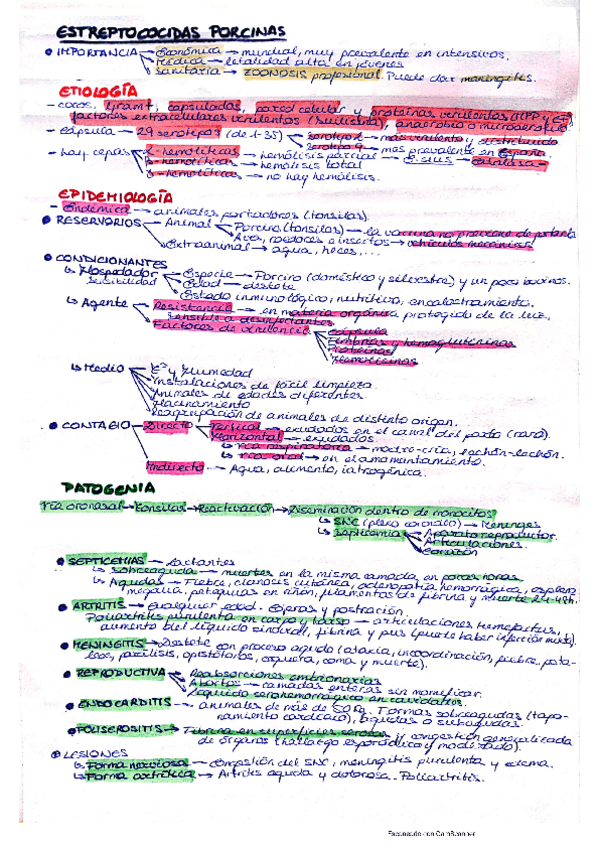 ESTREPTOCOCIDAS PORCINAS
• IMPORTANCIA → Económica → mundial, muy prevalente en intensivos.
Médica → letalidad alta en jóvenes
Sanitaria → ZOONOSIS profesional. Puede dar meningitis.
ETIOLOGÍA
- cocos, Gram+, capsulados, pared celular y proteinas virulentas (MPP y EF)
factores extracelulares virulentos (suilisina), anaerobio o microaerofilo
- cápsula → 29 serotipos (de 1-35) → serotipo 2 - más virulento y distribuido
Serotipo 9 - más prevalente en España.
- hay cepas → α-hemolíticas → hemólisis parcial → S. suis → catalasa -
β-hemolíticas → hemólisis total
γ-hemolíticas → no hay hemólisis.
EPIDEMIOLOGÍA
- Endémica → animales portadores (tonsilas).
• RESERVORIOS → Animal → Porcino (tonsilas) → la vacuna no previene de portantes
Aves, roedores e insectos → vehículos mecánicos
Extraanimal → agua, heces, ...
• CONDICIONANTES
↳ Hospedador → Especie → Porcino (doméstico y silvestre) y un poco bovinos.
Sensibilidad → Edad → destete
Estado inmunológico, nutritivo, encalostramiento.
↳ Agente → Resistencia → en materia orgánica, protegido de la luz,
sensible a desinfectantes
Factores de virulencia → Cápsula
Fimbrias y hemaglutininas
Proteinas
Hemolisinas
↳ Medio → Tª y Humedad
Instalaciones de fácil limpieza.
Animales de edades diferentes.
Hacinamiento
Reagrupación de animales de distinto origen.
• CONTAGIO → Directo → Vertical → exudados en el canal del parto (raro).
Horizontal → exudados.
↳ Vía respiratoria → madre-cría, lechón-lechón.
↳ Vía oral → en el amamantamiento.
Indirecto → Agua, alimento, iatrogénica.
PATOGENIA
Vía oronasal → Tonsilas → Reactivación → Diseminación dentro de monocitos
↳ SNC (plexo coroideo) → Meninges
↳ Septicemia → Aparato reproductor.
Articulaciones.
Corazón
• SEPTICEMIAS → Lactantes
↳ Sobreaguda → muertes en la misma camada en pocas horas
↳ Agudas → Fiebre, cianosis cutánea, adenopatía hemorrágica, esplenomegalia, petequias en riñón, filamentos de fibrina y muerte 24-48h.
• ARTRITIS → Cualquier edad. Cojeras y postración.
Poliartritis purulenta en carpo y tarso → articulaciones tumefactas,
aumento del líquido sinovial, fibrina y pus (puede haber infección mixta).
• MENINGITIS → Destete con proceso agudo (ataxia, incoordinación, fiebre, pataleos, parálisis, opistótonos, ceguera, coma y muerte).
• REPRODUCTIVA → Reabsorciones embrionarias
Abortos → camadas enteras sin momificar.
Líquido serohemorrágico en cavidades.
• ENDOCARDITIS → animales de más de . Formas sobreagudas (taponamiento cardiaco), agudas o subagudas.
• POLISEROSITIS → Fibrina en superficies serosas y congestión generalizada
de órganos (hallazgo esporádico y moderado).
• LESIONES
↳ Forma nerviosa → Congestión del SNC, meningitis purulenta y edema.
↳ Forma artrítica → Artritis aguda y dolorosa. Poliartritis.
Escaneado con CamScanner